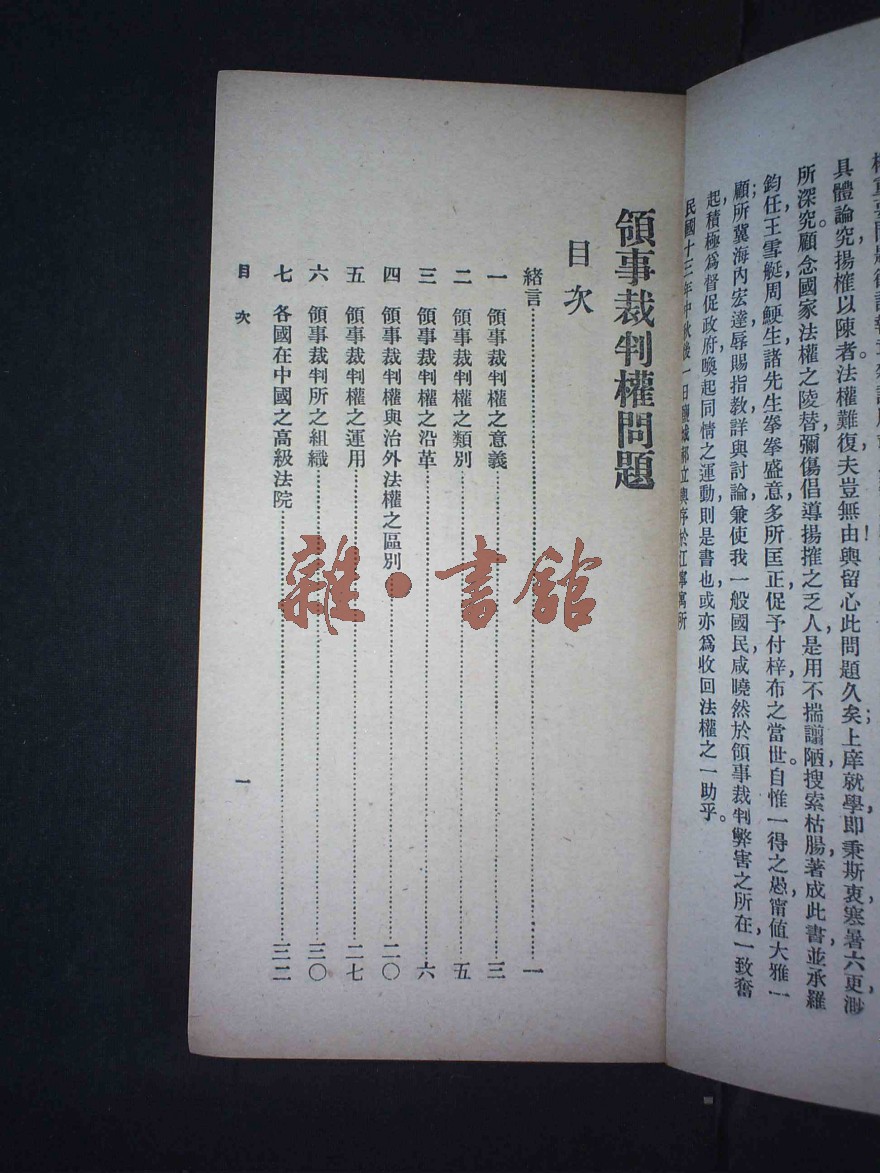 具體論究揚榷以陳者法權難復夫豈無由輿留心此問題久矣上庠就學即秉斯衷寒暑六更渺
所深究顧念國家法權之陵替彌傷倡導揚搉之乏人是用不揣譾陋搜索枯腸著成此書並承羅
鈞任王雪艇周鯁生諸先生拳拳盛意多所匡正促予付梓布之當世自惟一得之愚甯値大雅一
顧所冀海內宏達辱賜指教詳與討論兼使我一般國民咸曉然於領事裁判弊害之所在一致奮
起積極爲督促政府喚起同情之運動則是書也或亦爲收回法權之一助乎。
民國十三年中秋後一日鹽城郝立輿序於江寧寓所
領事裁判權問題
目次
緒言……一
一 領事裁判權之意義……三
二 領事裁判權之類別……五
三 領事裁判權之沿革……六
四 領事裁判權與治外法權之區別……二〇
五 領事裁判權之運用……二七
六 領事裁判所之組織……三〇
七 各國在中國之高級法院……三二
目次 一
雜·書館